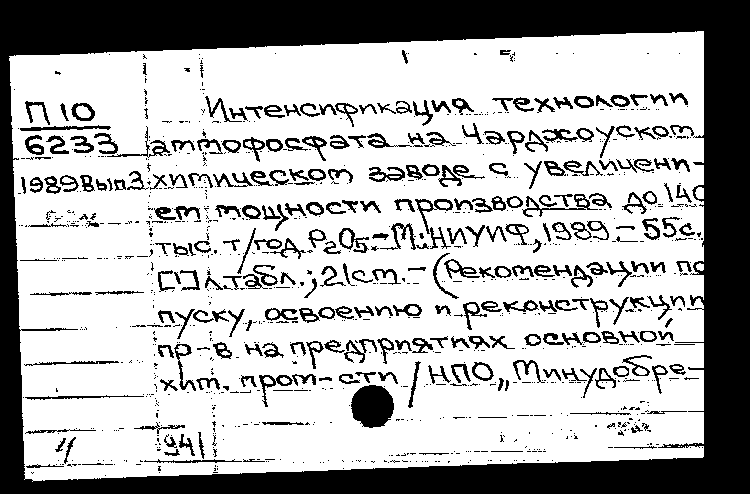 П 10
6233
1989 Вып.3
Интенсификация технологии
аммофосфата на Чарджоуском
химическом заводе с увеличени-
ем мощности производства до 140
тыс. т/год P₂O₅.-М.:НИУИФ, 1989.- 55с.,
[1] л.табл.; 21см.-(Рекомендации по
пуску, освоению и реконструкции
пр-в на предприятиях основной
хим. пром-сти / НПО „Минудобре-
4
941